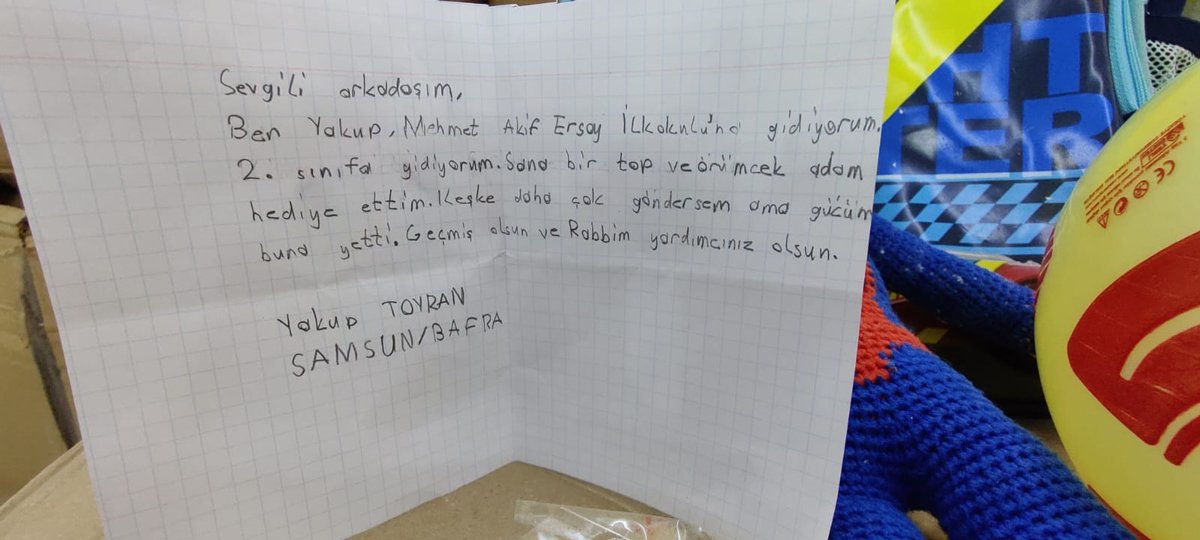 Sevgili arkadaşım,
Ben Yakup, Mehmet Akif Ersoy İlkokulu'na gidiyorum.
2. sınıfa gidiyorum. Sana bir top ve örümcek adam
hediye ettim. Keşke daha çok göndersem ama gücüm
buna yetti. Geçmiş olsun ve Rabbim yardımcınız olsun.
Yakup TOYRAN
SAMSUN/BAFRA
HT
TER
CE